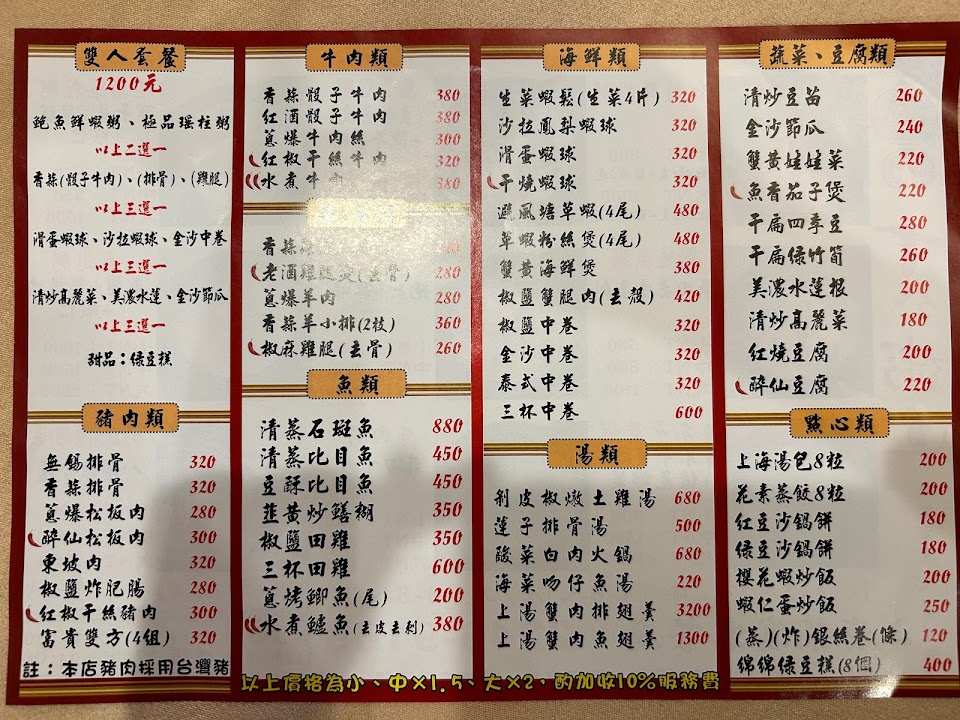 雙人套餐
1200元
鮑魚鮮蝦粥、極品瑤柱粥
以上二選一
香蒜(骰子牛肉)、(排骨)、(雞腿)
以上三選一
滑蛋蝦球、沙拉蝦球、金沙中卷
以上三選一
清炒高麗菜、美濃水蓮、金沙節瓜
以上三選一
甜品：綠豆糕
豬肉類
無錫排骨 320
香蒜排骨 320
蔥爆松板肉 280
醉仙松板肉 300
東坡肉 320
椒鹽炸肥腸 280
紅椒干絲豬肉 300
富貴雙方(4組) 320
註：本店豬肉採用台灣豬
牛肉類
香蒜骰子牛肉 380
紅酒骰子牛肉 380
蔥爆牛肉絲 300
紅椒干絲牛肉 320
水煮牛肉 380
香蒜
老酒雞腿煲(去骨) 280
蔥爆羊肉 280
香蒜羊小排(2枝) 360
椒麻雞腿(去骨) 260
魚類
清蒸石斑魚 880
清蒸比目魚 450
豆酥比目魚 450
韭黃炒鱔糊 350
椒鹽田雞 350
三杯田雞 600
蔥烤鯽魚(尾) 200
水煮鱸魚(去皮去刺) 380
海鮮類
生菜蝦鬆(生菜4片) 320
沙拉鳳梨蝦球 320
滑蛋蝦球 320
干燒蝦球 320
避風塘草蝦(4尾) 480
草蝦粉絲煲(4尾) 480
蟹黃海鮮煲 380
椒鹽蟹腿肉(去殼) 420
椒鹽中卷 320
金沙中卷 320
泰式中卷 320
三杯中卷 600
湯類
剝皮椒燉土雞湯 680
蓮子排骨湯 500
酸菜白肉火鍋 680
海菜吻仔魚湯 220
上湯蟹肉排翅羹 3200
上湯蟹肉魚翅羹 1300
蔬菜、豆腐類
清炒豆苗 260
金沙節瓜 240
蟹黃娃娃菜 220
魚香茄子煲 220
干扁四季豆 280
干扁綠竹筍 260
美濃水蓮根 200
清炒高麗菜 180
紅燒豆腐 200
醉仙豆腐 220
點心類
上海湯包8粒 200
花素蒸餃8粒 200
紅豆沙鍋餅 180
綠豆沙鍋餅 180
櫻花蝦炒飯 200
蝦仁蛋炒飯 250
(蒸)(炸)銀絲卷(條) 120
綿綿綠豆糕(8個) 400
以上價格為小、中×1.5、大×2，酌加收10%服務費